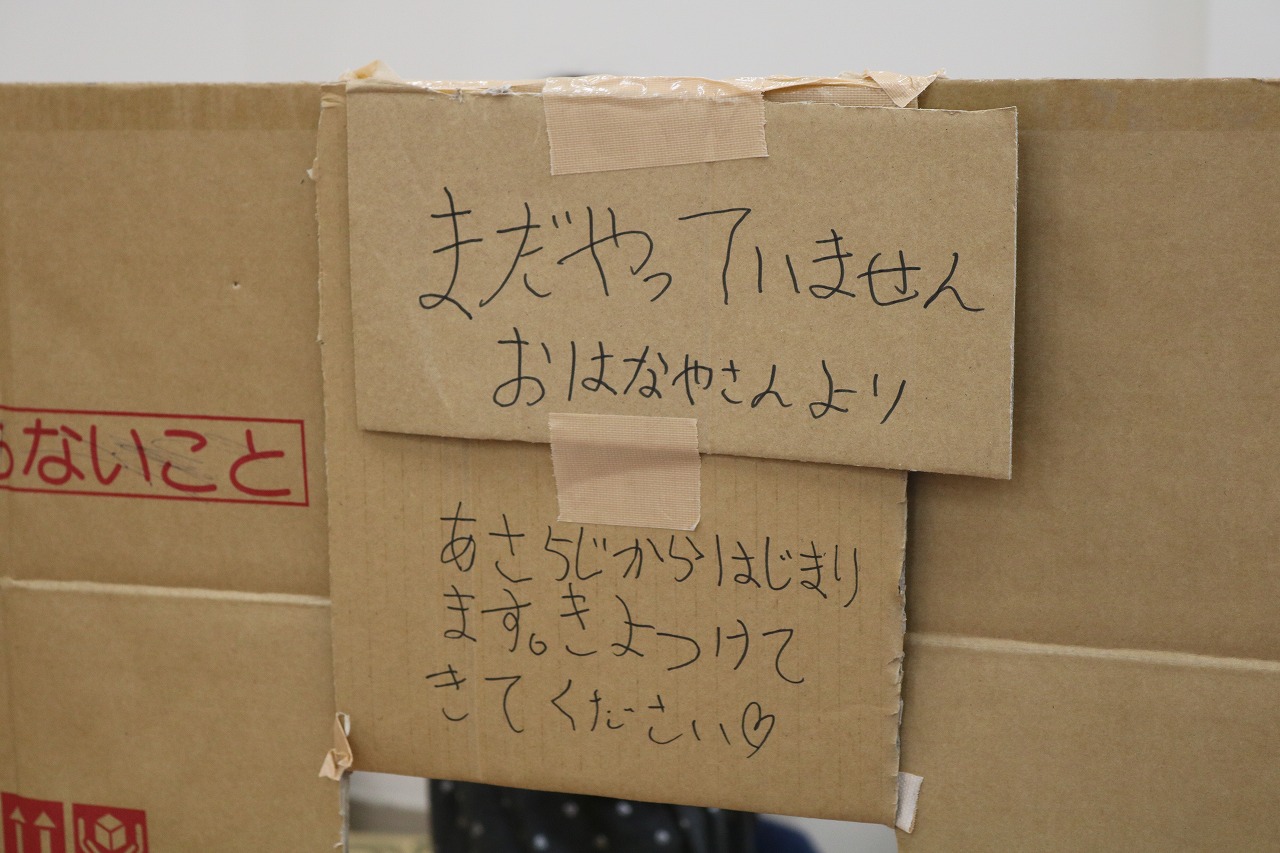 まだやっていません
おはなやさんより
ないこと
あさ5じからはじまり
ます。きよつけて
きてください♡